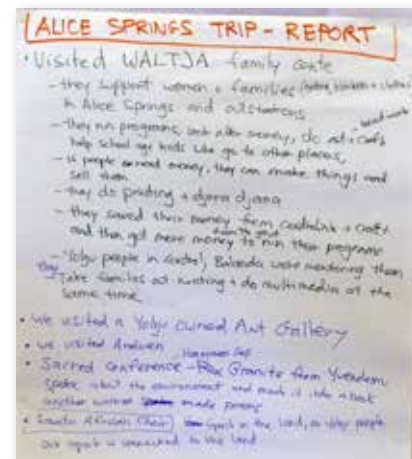 ALICE SPRINGS TRIP - REPORT
• Visited WALTJA family
- they support women + families
in Alice Springs and outstations
- they run programs, look after money, do art + crafts
help school age kids like go to other places,
- if people need money, they can make things and
sell them
- they do printing + djama djama
- they saved their money from centrelink + craft
and then got more money to run their programs
- Yolngu people in control, Balanda were mentoring them
Take families out hunting + do multimedia at the
same time
• we visited a Yolngu owned Art Gallery
• we visited
• Sacred Conference - from
spoke about the environment and made it into a book
another woman made
• Choir spirit in the land, as
our spirit is connected to the land